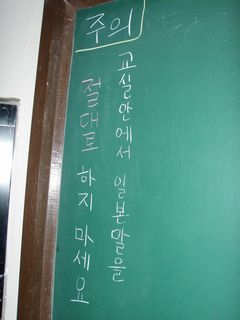 주의
교실안에서 일본말을
절대로 하지 마세요